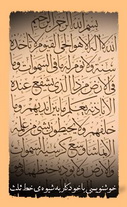 بسم الله الرحمن الرحيم
الله لا اله الا هو الحي القيوم لا تأخذه
سنة ولا نوم له ما في السموات وما
في الارض من ذا الذي يشفع عنده
الا باذنه يعلم ما بين ايديهم وما
خلفهم ولا يحيطون بشيء من علمه
الا بما شاء وسع كرسيه السموات
والارض ولا يؤده حفظهما
خوشنویسی با خودکار به شیوه ی خط ثلث